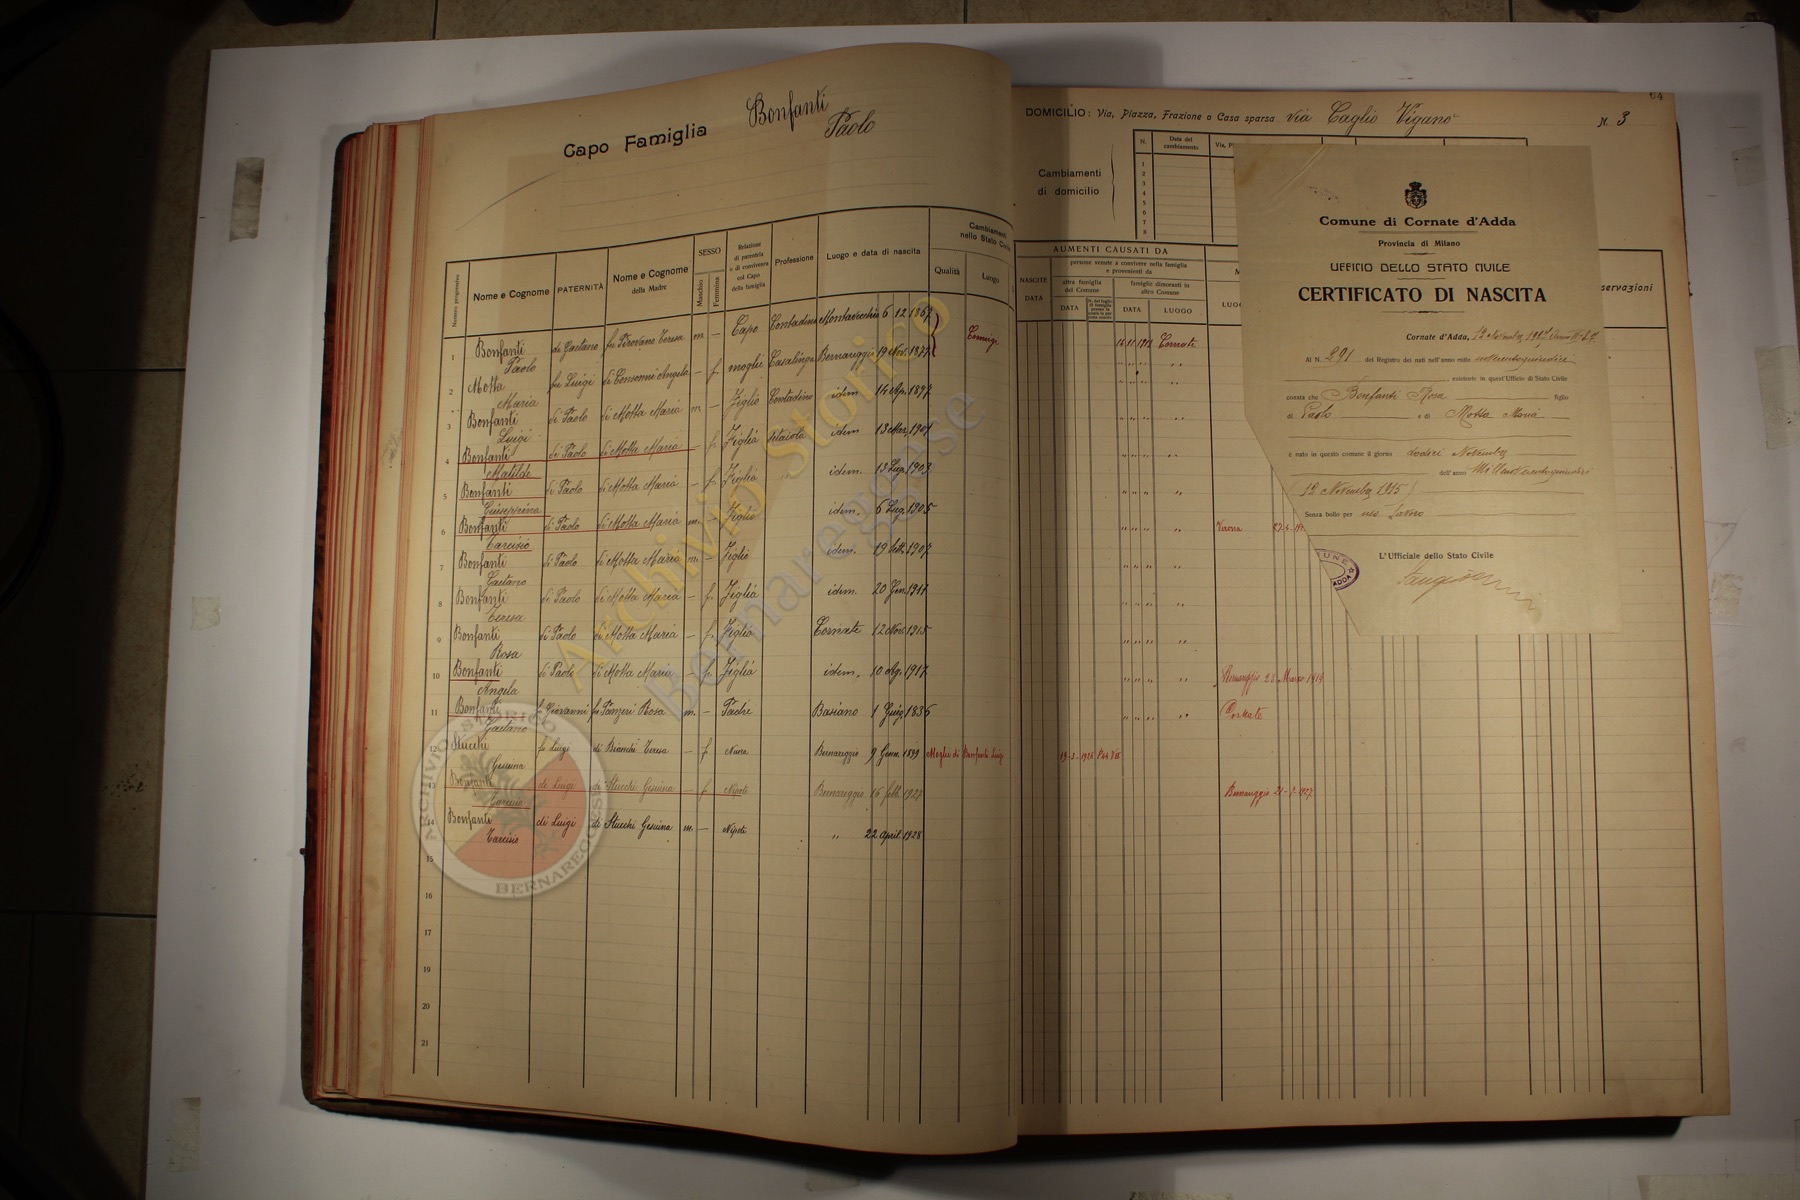 Capo Famiglia Bonfanti
Paolo
Numero progressivo
Nome e Cognome
PATERNITÀ
Nome e Cognome
della Madre
SESSO
Maschio
Femmina
Relazione
di parentela
o di convivenza
col Capo
della famiglia
Professione
Luogo e data di nascita
Cambiamenti
nello Stato Civile
Qualità
Luogo
1 Bonfanti Paolo di Gaetano fu Pirovano Teresa m — Capo Contadino Montevecchia 6 12 1867 Coniugi
2 Motta Maria fu Luigi di Consonni Angela — f moglie Casalinga Bernareggio 19 Nov. 1877
3 Bonfanti Luigi di Paolo di Motta Maria m — Figlio Contadino idem 14 Ap. 1897
4 Bonfanti Matilde di Paolo di Motta Maria — f Figlia Setaiola idem 13 Mar. 1901
5 Bonfanti Giuseppina di Paolo di Motta Maria — f Figlia idem. 13 Lug. 1903
6 Bonfanti Tarcisio di Paolo di Motta Maria m. — Figlio idem. 6 Lug. 1905
7 Bonfanti Gaetano di Paolo di Motta Maria m — Figlio idem. 19 Sett. 1907
8 Bonfanti Teresa di Paolo di Motta Maria — f Figlia idem. 20 Gen. 1911
9 Bonfanti Rosa di Paolo di Motta Maria — f. Figlia Cornate 12 Nov. 1915
10 Bonfanti Angela di Paolo di Motta Maria — f Figlia idem. 10 Ag. 1917
11 Bonfanti Gaetano fu Giovanni fu Panzeri Rosa m. — Padre Basiano 1 Giug. 1836
12 Stucchi Gesuina fu Luigi di Bianchi Teresa — f Nuora Bernareggio 9 Genn. 1899 Moglie di Bonfanti Luigi
13 Bonfanti di Luigi di Stucchi Gesuina — f Nipote Bernareggio 16 febb. 1927
14 Bonfanti Tarcisio di Luigi di Stucchi Gesuina m. — Nipote „ 22 April. 1928
15
16
17
18
19
20
21
64
DOMICILIO: Via, Piazza, Frazione o Casa sparsa via Caglio Viganò N. 3
Cambiamenti
di domicilio
N.
Data del
cambiamento
1
2
3
4
5
6
7
8
AUMENTI CAUSATI DA
NASCITE
DATA
persone venute a convivere nella famiglia
e provenienti da
altra famiglia
del Comune
famiglie dimoranti in
altro Comune
DATA
DATA
LUOGO
servazioni
16 11 1918 Cornate
Verona 27-4-19
Bernareggio 28 Marzo 1919
Cornate
19-3-1926
Bernareggio 21-9-1927
Comune di Cornate d'Adda
Provincia di Milano
UFFICIO DELLO STATO CIVILE
CERTIFICATO DI NASCITA
Cornate d'Adda, 12 Novembre
Al N. 291 del Registro dei nati nell'anno mille novecentoquindici
esistente in quest'Ufficio di Stato Civile
consta che Bonfanti Rosa figlio
di Paolo e di Motta Maria
è nato in questo comune il giorno dodici Novembre
dell'anno Millenovecentoquindici
(12 Novembre 1915)
Senza bollo per uso Lavoro
L'Ufficiale dello Stato Civile
ADDA
Archivio Storico
Bernareggese
ARCHIVIO STORICO
BERNAREGGESE